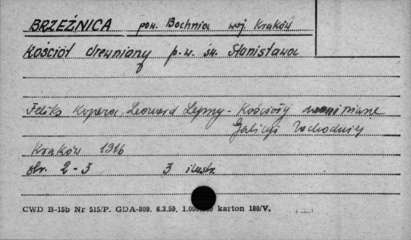 BRZEŹNICA pow. Bochnia woj Kraków
Kościół drewniany p.w. św. Stanisława
Feliks Kopera, Leonard Lepszy - Kościoły drewniane
Galicji Zachodniej
Kraków 1916
str. 2-3 3 ilustr
CWD B-15b Nr 515/P. GDA-809. 6.3.59, 1.000 karton 180/V.